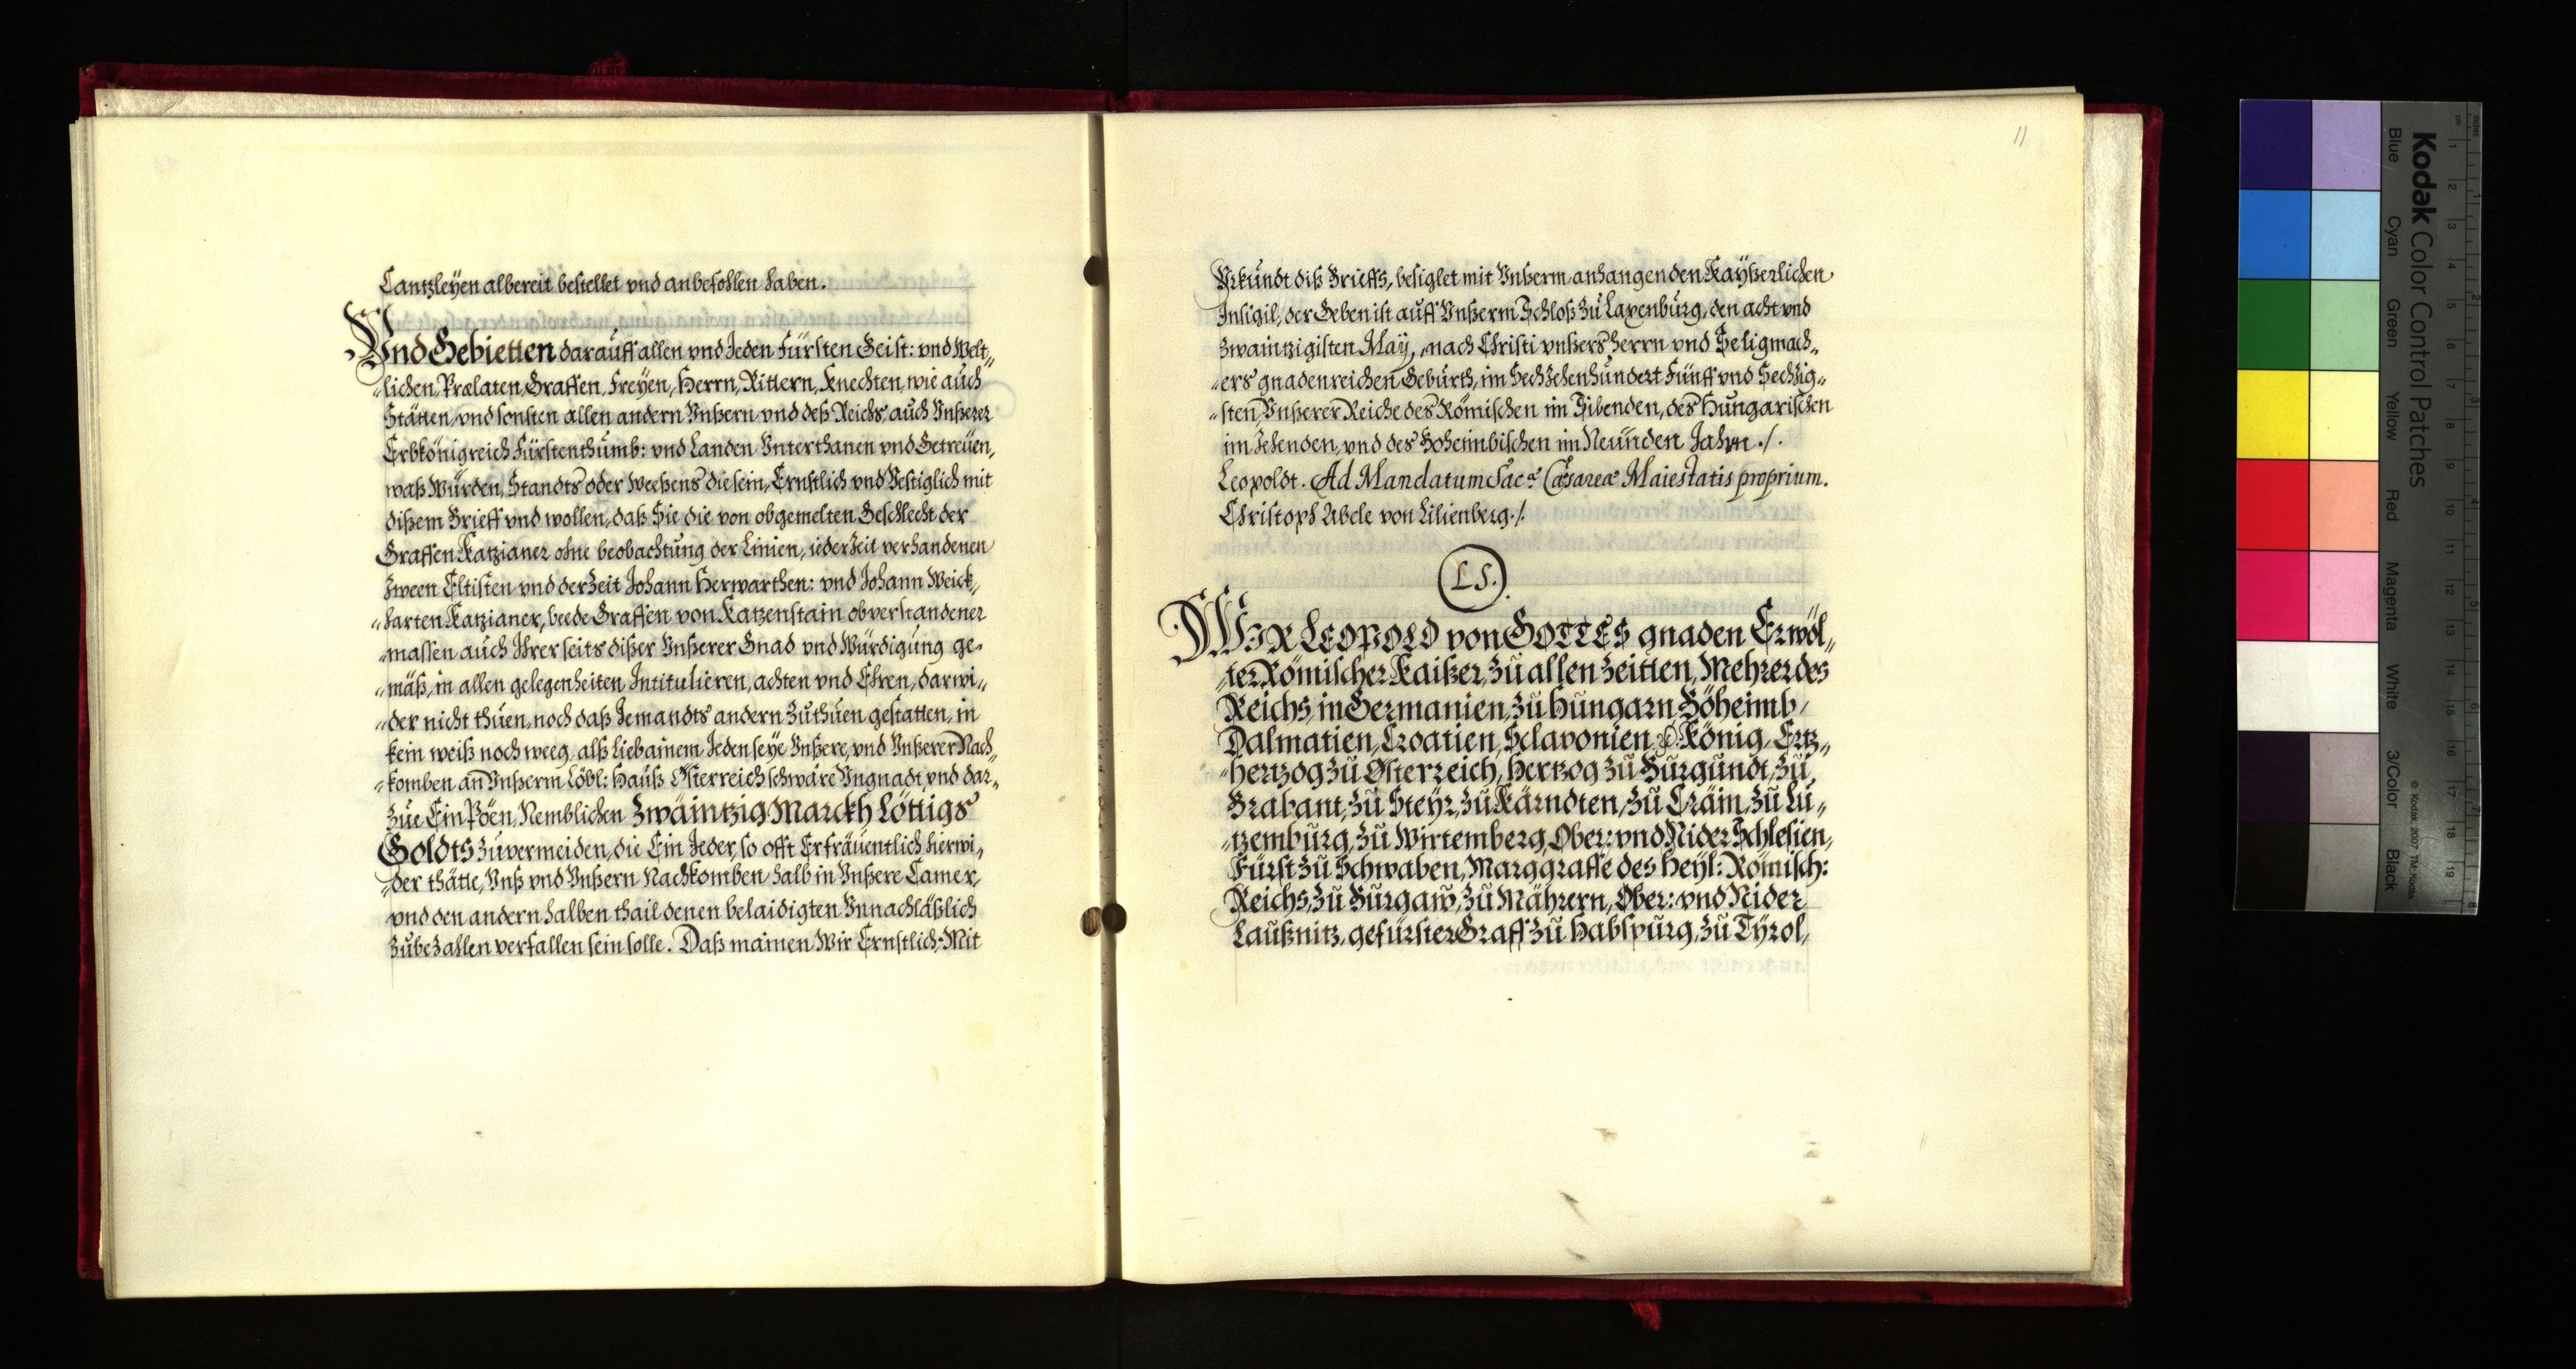 Cantzleÿen albereit bestellet vnd anbefohlen haben.
Vnd Gebietten darauff allen vnd Jeden Fürsten Geist: vnd Welt„
„lichen, Prælaten, Graffen, Freyen, Herrn, Rittern, Knechten, wie auch
Stätten, vnd sonsten allen andern Vnßern vnd deß Reichs, auch Vnßerer
Erbkönigreich Fürstenthumb: vnd Landen Vnterthanen vnd Getreüen,
waß Würden, Standts oder Weeßens die sein, Ernstlich vnd Vestiglich mit
dißem Brieff vnd wollen, daß Sie die von obgemelten Geschlecht der
Graffen Katzianer ohne beobachtung der Linien, iederZeit verhandenen
Zween Eltisten vnd derZeit Johann Herwarthen: vnd Johann Weick„
„harten Katzianer, beede Graffen von Katzenstain obverstandener
„massen auch Ihrerseits dißer Vnßerer Gnad vnd Würdigung ge„
„mäß, in allen gelegenheiten Intitulieren, achten vnd Ehren, darwi„
„der nicht thuen, noch daß Jemandts andern Zuthuen gestatten, in
kein weiß noch weeg, alß Lieb ainem Jeden seÿe Vnßere, vnd Vnßerer Nach„
„komben an Vnßerm Löbl: Hauß Österreich schwäre Vngnadt, vnd dar„
Zue Ein Pöen, Nemblichen Zwäintzig Marckh Löttigs
Goldts Zuvermeiden, die Ein Jeder, so offt Er fräuentlich hierwi„
„der thätte, Vnß vnd Vnßern Nachkomben halb in Vnßere Camer,
vnd den andern halben thail denen belaidigten Vnnachläßlich
ZubeZahlen verfallen sein solle. Daß mainen Wir Ernstlich, Mit
11
Vrkundt diß Brieffs, besiglet mit Vnßerm anhangenden Kaÿßerlichen
Insigil, der Geben ist auff Vnßerm Schloß Zu Laxenburg, den acht vnd
Zwaintzigisten Maÿ, nach Christi vnßers herrn vnd Seligmach„
„ers gnadenreichen Geburth, im SechZehenhundert Fünff vnd Sechzig„
„sten, Vnßerer Reiche des Römischen im Sibenden, des Hungarischen
im Zehenden, vnd des Boheimbischen im Neünden Jahrn ./.
Leopoldt. Ad Mandatum Sac.æ Cæsareæ Maiestatis proprium.
Christoph Abele von Lilienberg ./.
L S.
WIR LEOPOLD von GOTTES gnaden Erwöl„
„ter Römischer Kaißer, Zu allen Zeitten, Mehrer des
Reichs, in Germanien, Zu Hungarn Böheimb,
Dalmatien, Croatien, Sclavonien, &c König, Ertz„
„hertzog Zu Österreich, Hertzog Zu Burgundt, Zu
Brabant, Zu Steÿr, Zu Kärndten, Zu Cräin, Zu Lu„
„tzemburg, Zu Wirtemberg, Ober: vnd Nider Schlesien,
Fürst Zu Schwaben, Marggraffe des Heyl: Römisch:
Reichs, Zu Burgaw, Zu Mährern, Ober: vnd Nider
Laußnitz, gefürster Graff Zu Habspurg, Zu Tÿrol,
Kodak Color Control Patches
Blue Cyan Green Yellow Red Magenta White 3/Color Black
© Kodak, 2007 TM: Kodak